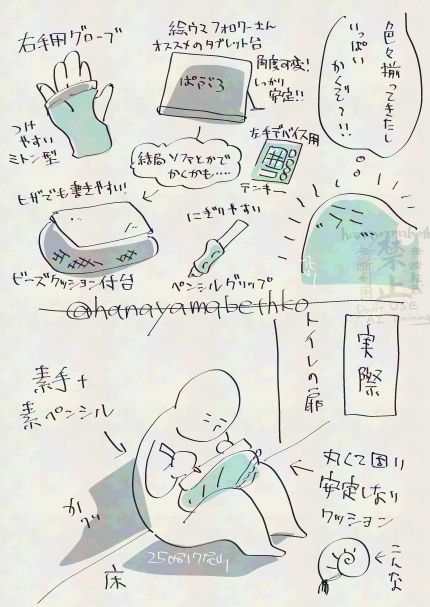 色々揃ってきたし
いっぱい
かくぞ〜!!
右手用グローブ
つけ
やすい
ミトン型
絵ウマフォロワーさん
オススメのタブレット台
ぱぶろ
角度可変!
しっかり
安定!!
左手デバイス用
テンキー
結局ソファとかで
かくかも....
ヒザでも書きやすい!
ビーズクッション付台
にぎりやすい
ペンシルグリップ
禁止
@hanayamabethko
実際
トイレの扉
素手+
素ペンシル
かべ
床
丸くて固い
安定しない
クッション
こんな